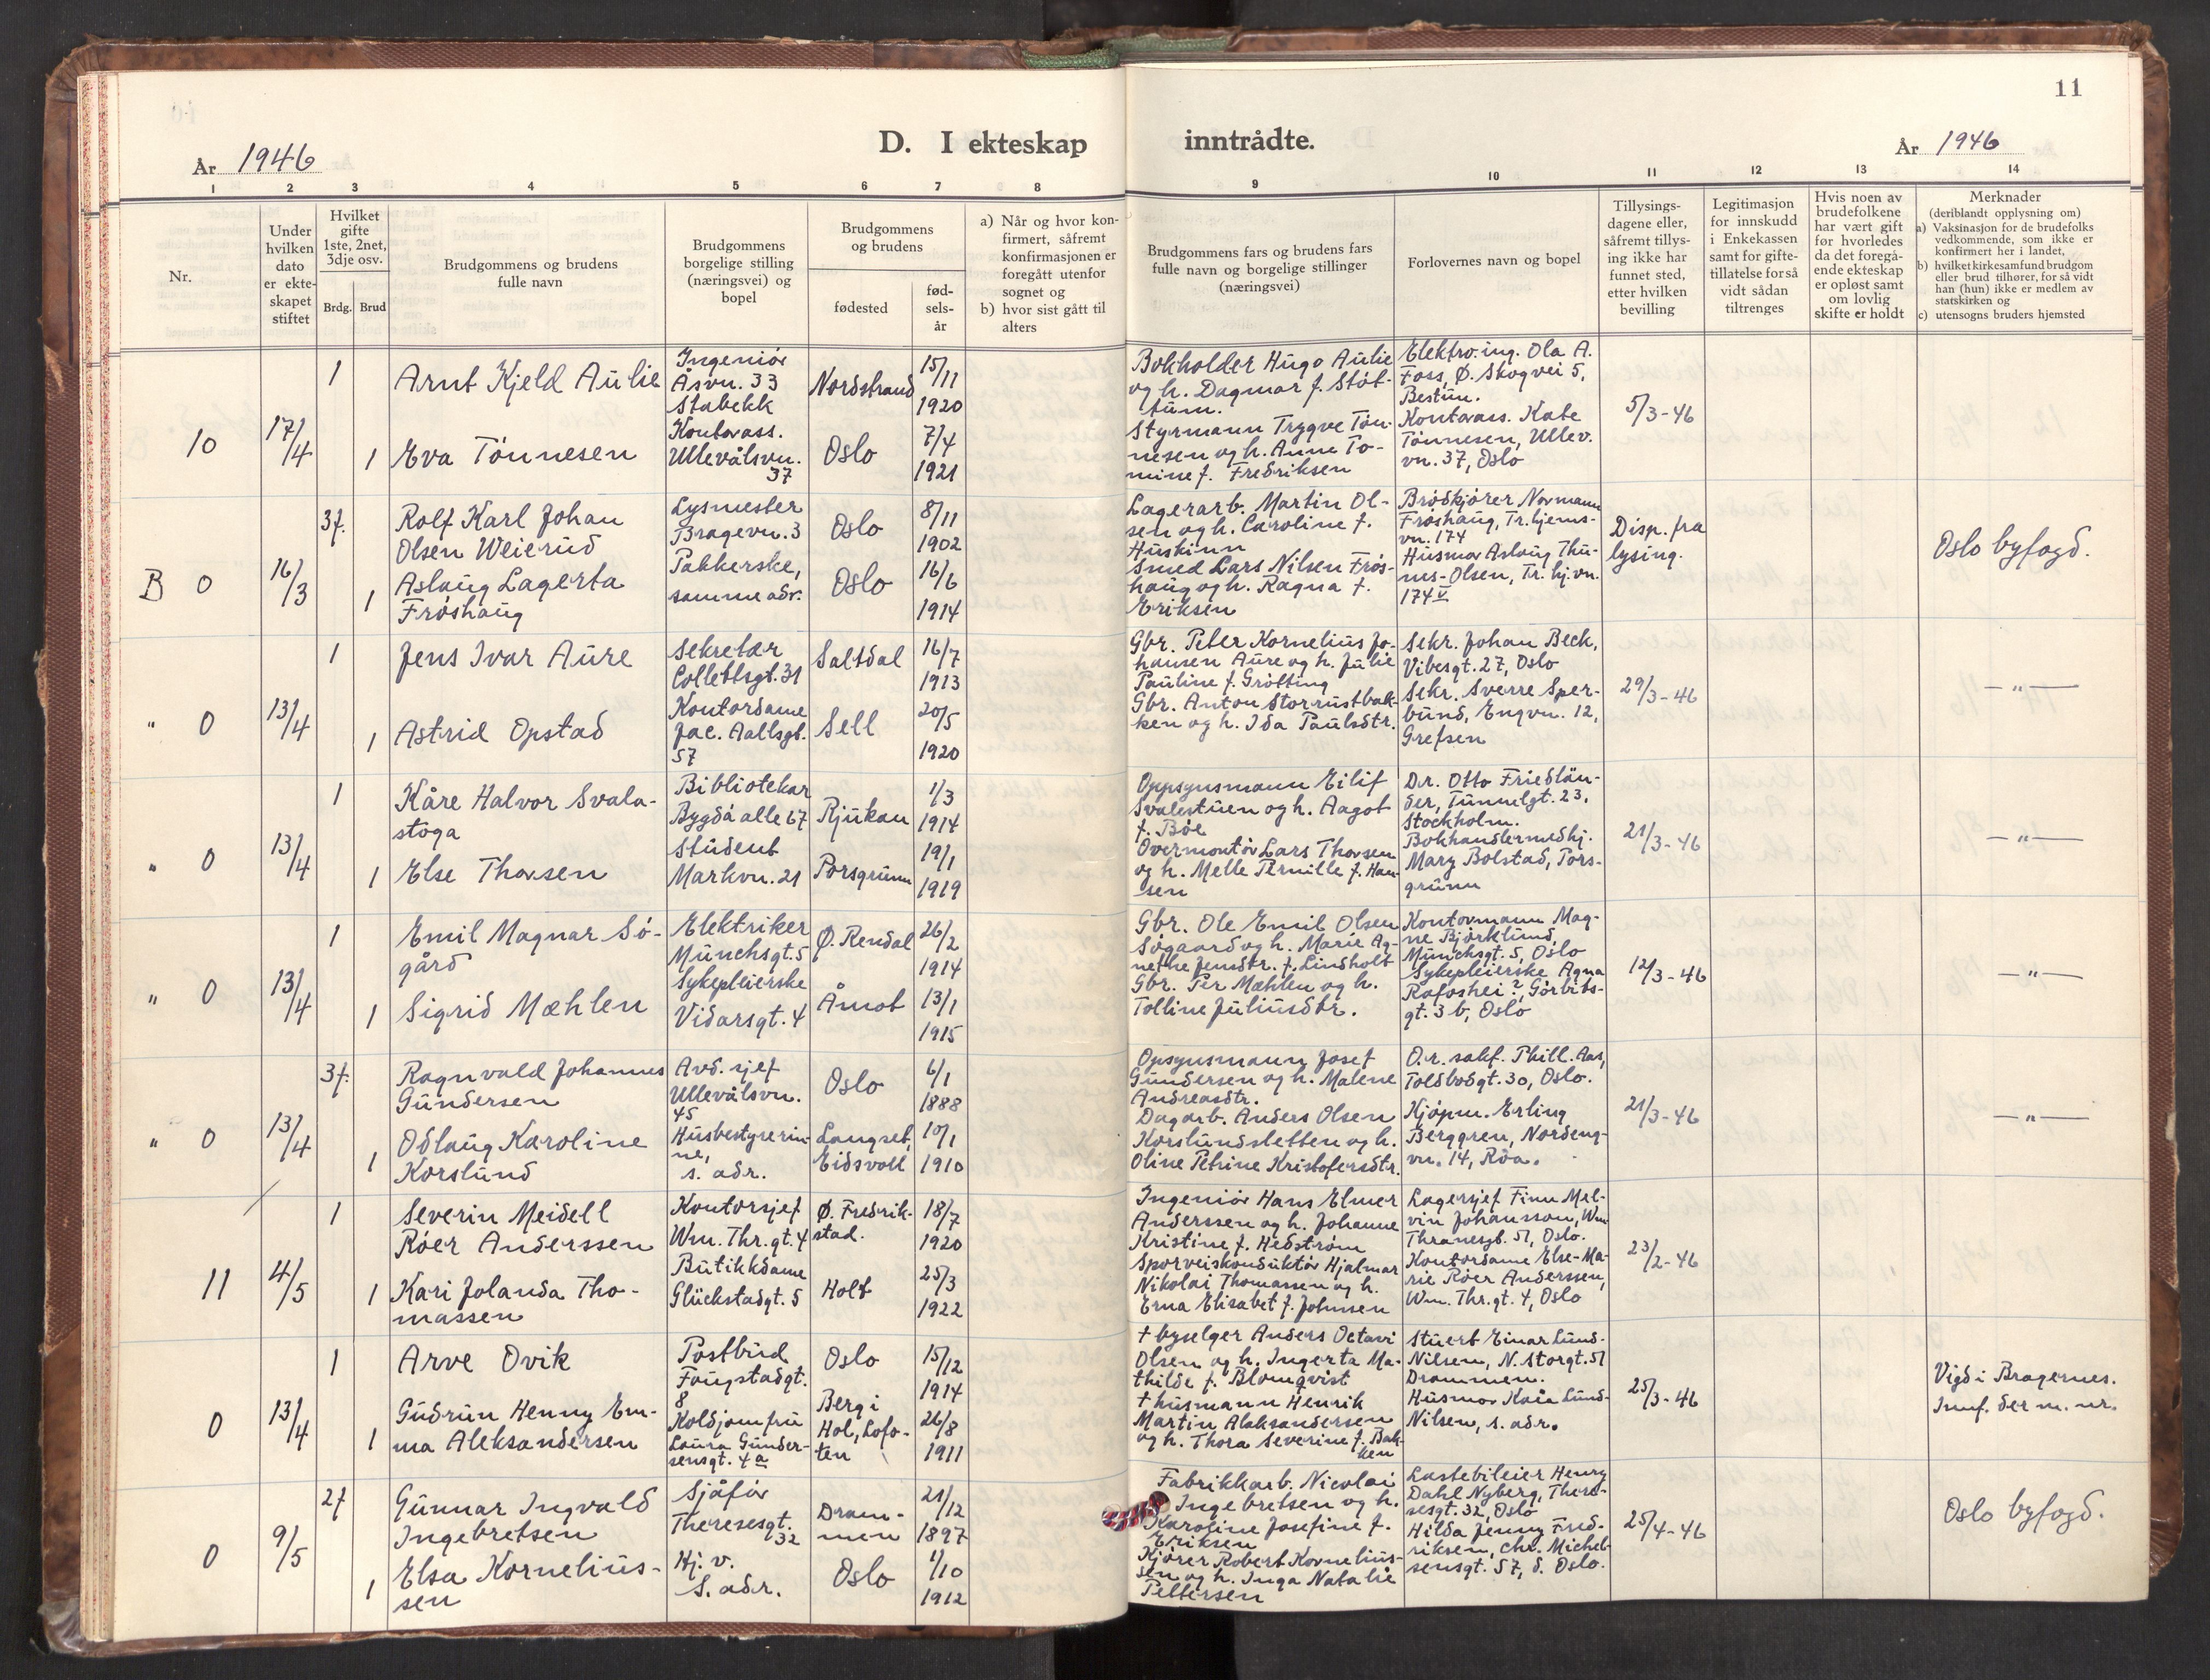 11
D. I ekteskap inntrådte.
År 1946
År 1946
1 2 3 4 5 6 7 8 9 10 11 12 13 14
Nr.
Under
hvilken
dato
er ekte-
skapet
stiftet
Hvilket
gifte
1ste, 2net,
3dje osv.
Brdg. Brud
Brudgommens og brudens
fulle navn
Brudgommens
borgelige stilling
(næringsvei) og
bopel
Brudgommens
og brudens
fødested
fød-
sels-
år
a) Når og hvor kon-
firmert, såfremt
konfirmasjonen er
foregått utenfor
sognet og
b) hvor sist gått til
alters
Brudgommens fars og brudens fars
fulle navn og borgelige stillinger
(næringsvei)
Forlovernes navn og bopel
Tillysings-
dagene eller,
såfremt tillys-
ing ikke har
funnet sted,
etter hvilken
bevilling
Legitimasjon
for innskudd
i Enkekassen
samt for gifte-
tillatelse for så
vidt sådan
tiltrenges
Hvis noen av
brudefolkene
har vært gift
før hvorledes
da det foregå-
ende ekteskap
er opløst samt
om lovlig
skifte er holdt
Merknader
(deriblandt opplysning om)
a) Vaksinasjon for de brudefolks
vedkommende, som ikke er
konfirmert her i landet,
b) hvilket kirkesamfund brudgom
eller brud tilhører, for så vidt
han (hun) ikke er medlem av
statskirken og
c) utensogns bruders hjemsted
10
17/4
1
Arnt Kjeld Aulie
Ingeniør
Åsvn. 33
Stabekk
Nordstrand
15/11
1920
1
Eva Tønnesen
Kontorass.
Ullevålsvn.
37
Oslo
7/4
1921
Bokholder Hugo Aulie
og h. Dagmar f. Støt-
tum.
Styrmann Trygve Tøn-
nesen og h. Anne To-
mine f. Fredriksen
Elektro.ing. Ola A.
Foss, Ø. Skogvei 5,
Bestun.
Kontorass. Kate
Tønnesen, Ullev.
vn. 37, Oslo
5/3-46
B 0
16/3
3f.
Rolf Karl Johan
Olsen Weierud
Lysmester
Bragevn. 3
Oslo
8/11
1902
1
Aslaug Lagerta
Frøshaug
Pakkerske,
samme adr.
Oslo
16/6
1914
Lagerarb. Martin Ol-
sen og h. Caroline f.
Huskinn
Smed Lars Nilsen Frøs-
haug og h. Ragna f.
Eriksen
Brødkjører Normann
Frøshaug, Tr.hjems-
vn. 174
Husmor Aslaug Thu-
nes-Olsen, Tr. hj.vn.
174 V
Disp. fra
lysing.
Oslo byfogd.
" 0
13/4
1
Jens Ivar Aure
Sekretær
Collettsgt. 31
Saltdal
16/7
1913
1
Astrid Opstad
Kontordame
Jac. Aallsgt.
57
Sell
20/5
1920
Gbr. Peter Kornelius Jo-
hansen Aure og h. Julie
Pauline f. Grøtting
Gbr. Anton Storrustbak-
ken og h. Ida Paulsdtr.
Sekr. Johan Beck,
Vibesgt. 27, Oslo
Sekr. Sverre Sper-
bund, Engvn. 12,
Grefsen
29/3-46
— " —
" 0
13/4
1
Kåre Halvor Svala-
stoga
Bibliotekar
Bygdø alle 67
Rjukan
1/3
1914
1
Else Thorsen
Student
Markvn. 21
Porsgrunn
19/1
1919
Oppsynsmann Eilif
Svalestuen og h. Aagot
f. Bøe
Overmontør Lars Thorsen
og h. Melle Pernille f. Han-
sen
D.r. Otto Friedlän-
der, Tunnelgt. 23,
Stockholm.
Bokhandlermedhj.
Mary Bolstad, Pors-
grunn
21/3-46
— " —
" 0
13/4
1
Emil Magnar Sø-
gård
Elektriker
Munchsgt. 5
Ø. Rendal
26/2
1914
1
Sigrid Mæhlen
Sykepleierske
Vidarsgt. 4
Åmot
13/1
1915
Gbr. Ole Emil Olsen
Søgaard og h. Marie Ag-
nethe Jensdtr. f. Lindholt
Gbr. Per Mæhlen og h.
Tolline Juliusdtr.
Kontormann Mag-
ne Bjørklund,
Munchsgt. 5, Oslo
Sykepleierske Agna
Rafoshei?, Gørbits-
gt. 3 b, Oslo
12/3-46
— " —
" 0
13/4
3f.
Ragnvald Johannes
Gundersen
Avd. sjef
Ullevålsvn.
45
Oslo
6/1
1888
1
Odlaug Karoline
Korslund
Husbestyrerin-
ne,
s. adr.
Langset,
Eidsvoll
10/1
1910
Opsynsmann Josef
Gundersen og h. Malene
Andreasdtr.
Dagarb. Anders Olsen
Korslundsletten og h.
Oline Petrine Kristofersdtr.
O.r. sakf. Thill. Aas,
Toldbodgt. 30, Oslo.
Kjøpm. Erling
Berggren, Nordeng-
vn. 14, Røa.
21/3-46
— " —
11
4/5
1
Severin Meidell
Røer Anderssen
Kontorsjef
Wm. Thr.gt. 4
Ø. Fredrik-
stad.
18/7
1920
1
Kari Jolanda Tho-
massen
Butikkdame
Glückstadgt. 5
Holt
25/3
1922
Ingeniør Hans Elmer
Anderssen og h. Johanne
Kristine f. Hedstrøm
Sporveiskonduktør Hjalmar
Nikolai Thomassen og h.
Erna Elisabet f. Johnsen
Lagersjef Finn Mel-
vin Johansson, Wm
Thranesgt. 51, Oslo.
Kontordame Else-Ma-
rie Røer Anderssen,
Wm. Thr.gt. 4, Oslo
23/2-46
0
13/4
1
Arve Ovik
Postbud
Fougstadgt.
8
Oslo
15/12
1914
1
Gudrun Henny Em-
ma Aleksandersen
Koldjomfru
Laura Gunder-
sensgt. 4 a
Berg i
Hol, Lofo-
ten
26/8
1911
† byselger Anders Octavi
Olsen og h. Ingerta Ma-
thilde f. Blomqvist
† husmann Henrik
Martin Aleksandersen
og h. Thora Severine f. Bak-
ken
Stuert Einar Lund-
Nilsen, N. Storgt. 51
Drammen.
Husmor Kaia Lund-
Nilsen, s. adr.
25/3-46
Vigd i Bragernes.
Innf. der m. nr.
0
9/5
2f
Gunnar Ingvald
Ingebretsen
Sjåfør
Theresesgt.
32
Dram-
men
21/12
1897
1
Elsa Kornelius-
sen
Hj. v.
S. adr.
Oslo
1/10
1912
Fabrikkarb. Nicolai
Ingebretsen og h.
Karoline Josefine f.
Eriksen
Kjører Robert Kornelius-
sen og h. Inga Natalie
Pettersen
Lastebileier Henry
Dahl Nyberg, There-
sesgt. 32, Oslo
Hilda Jenny Fred-
riksen, Chr. Michel-
sensgt. 57, d. Oslo.
25/4-46
Oslo byfogd.